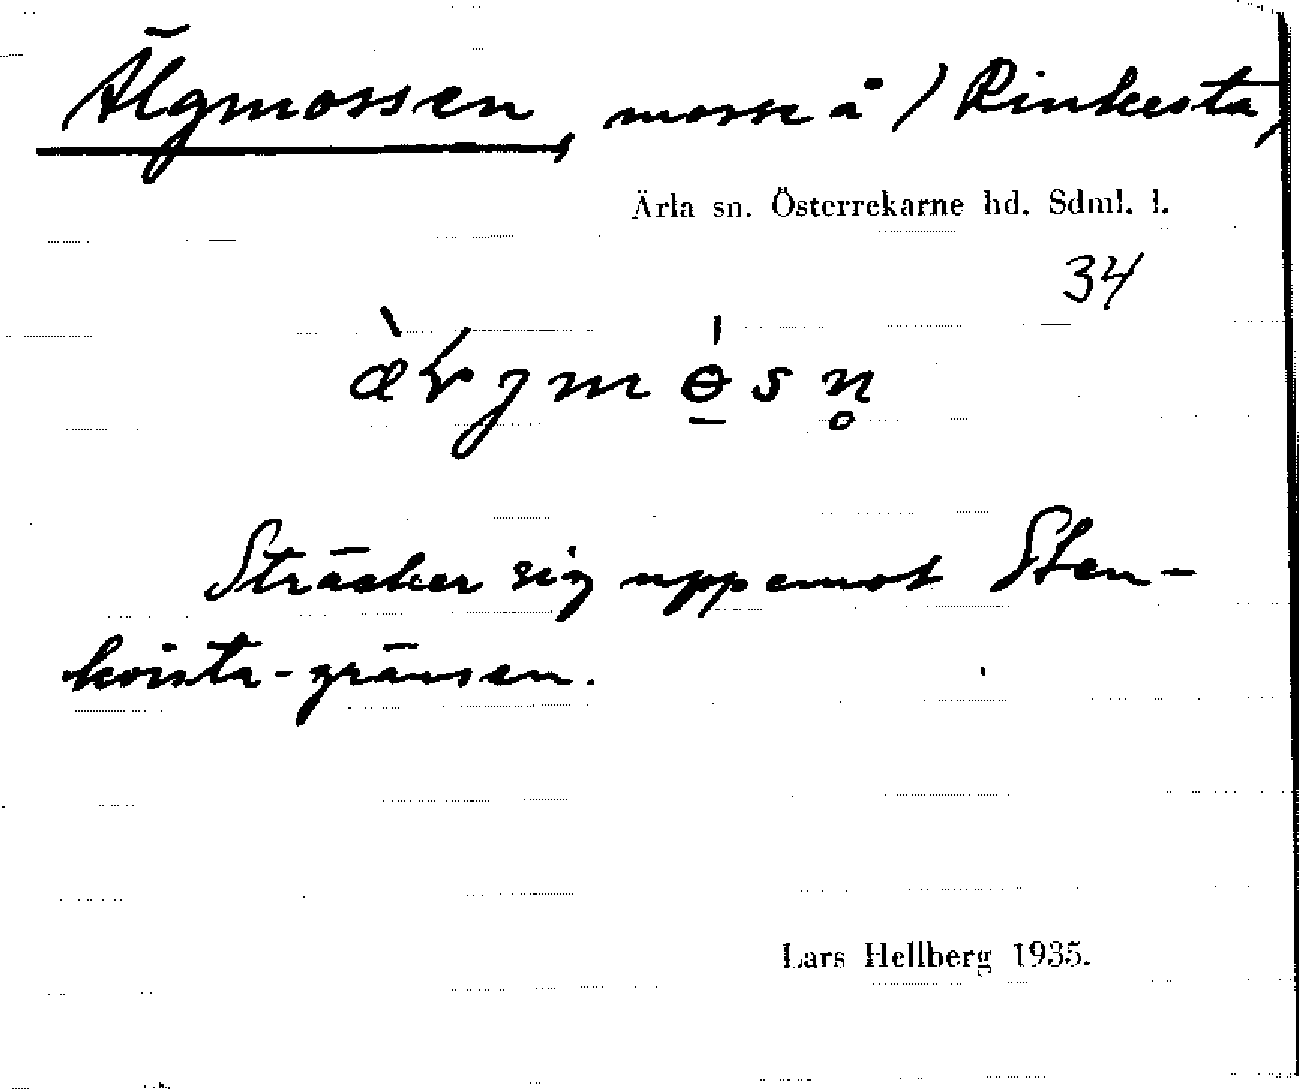 Älgmossen, mosse å / Rinkesta,
Ärla sn. Österrekarne hd. Sdml. l.
34
Sträcker sig uppemot Sten-
kvista-gränsen.
Lars Hellberg 1935.